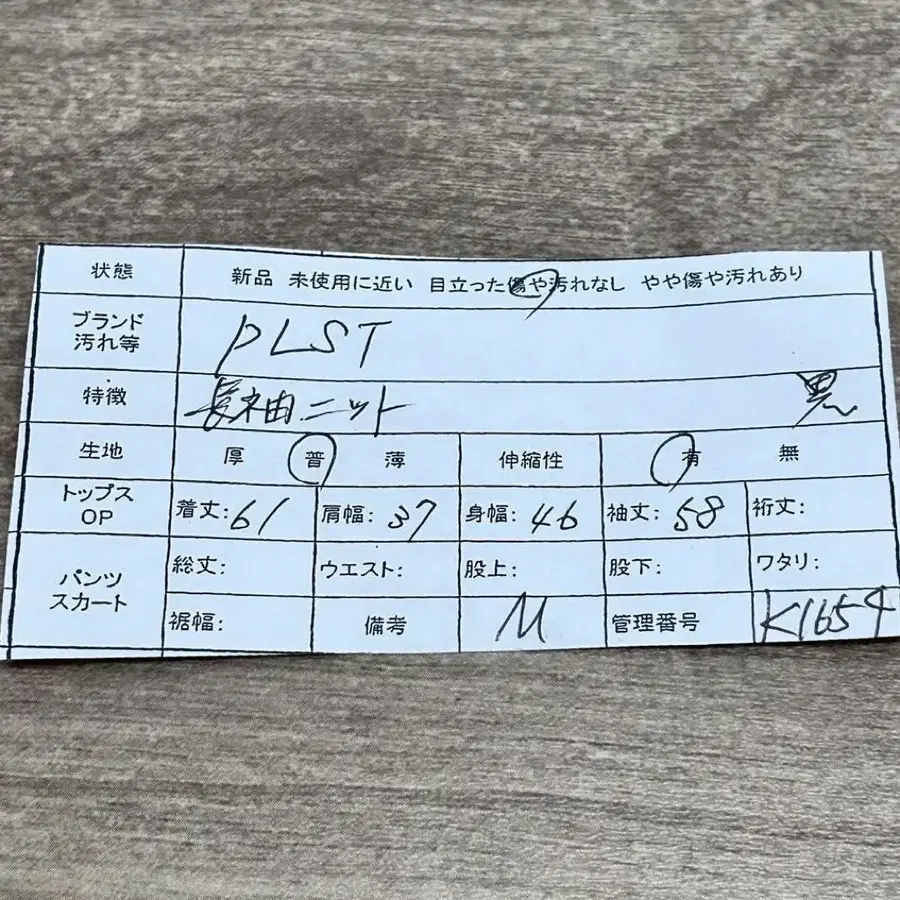 状態 新品 未使用に近い 目立った傷や汚れなし やや傷や汚れあり
ブランド
汚れ等 PLST
特徴 長袖ニット 黒
生地 厚 普 薄 伸縮性 有 無
トップス
OP 着丈:61 肩幅:37 身幅:46 袖丈:58 裄丈:
パンツ
スカート 総丈: ウエスト: 股上: 股下: ワタリ:
裾幅: 備考 M 管理番号 K1654